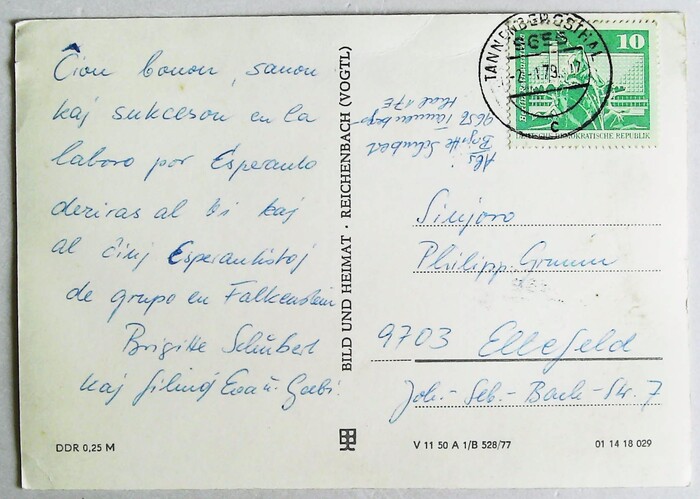 Ĉion bonon, sanon
kaj sukceson en la
laboro por Esperanto
deziras al vi kaj
al ĉiuj Esperantistoj
de grupo en Falkenstein
Brigitte Schubert
kaj filinoj Eva u. Gabi.
DDR 0,25 M
BILD UND HEIMAT · REICHENBACH (VOGTL)
V 11 50 A 1/B 528/77
01 14 18 029
TANNENBERGSTHAL
10
DEUTSCHE DEMOKRATISCHE REPUBLIK
Abs.
Brigitte Schubert
9656 Tannenbergs-
thal 17E
Sinjoro
Philipp
9703 Ellefeld
Joh.-Seb.-Bach-Str. 7